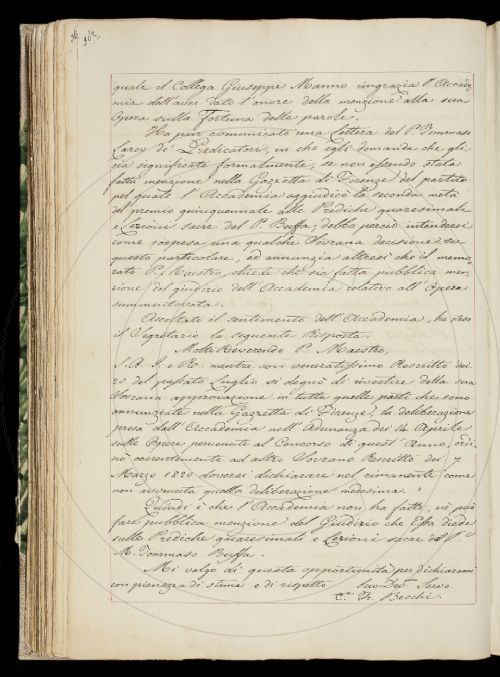 quale il Collega Giuseppe Manno ringrazia l'Accade-
mia dall'aver dato l'onore della menzione alla sua
Opera sulla Fortuna delle parole.
Ha pur comunicato una Lettera del P. Tommaso
de' Predicatori, in che egli domanda che gli
sia significato formalmente, se non essendo stata
fatta menzione nella Gazzetta di Firenze del partito
pel quale l'Accademia aggiudicò la seconda metà
del premio quinquennale alle Prediche quaresimali
e Lezioni sacre del P. Buffa, debba perciò intendersi
come sospesa una qualche Sovrana decisione su
questo particolare, ed annunzia altresì che il memo-
rato P. Maestro, chiede che sia fatta pubblica men-
zione del giudizio dell'Accademia relativo all'Opera
summentovata.
Ascoltato il sentimento dell'Accademia, ha steso
il Segretario la seguente Risposta.
Molto Reverendo P. Maestro,
S. A. I. e R. mentre con veneratissimo Rescritto dei
20 del passato Luglio si degnò di rivestire della sua
Sovrana approvazione in tutte quelle parti che sono
annunziate nella Gazzetta di Firenze, la deliberazione
presa dall'Accademia nell'Adunanza dei 14 Aprile
sulle Opere pervenute al Concorso di quest'Anno, ordi-
nò coerentemente ad altro Sovrano Rescritto dei 7
Marzo 1820 doversi dichiarare nel rimanente come
non avvenuta quella deliberazione medesima.
Quindi è che l'Accademia non ha fatto, nè può
fare pubblica menzione del Giudizio che Essa diede
sulle Prediche quaresimali e Lezioni sacre del P.
M. Tommaso Buffa.
Mi valgo di questa opportunità per dichiararmi
con pienezza di stima e di rispetto Suo Dev. Servo
Fr. Becchi.